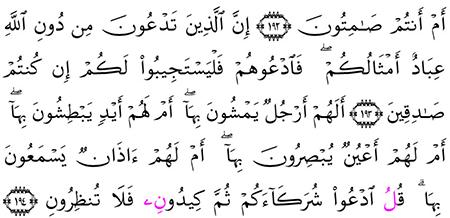 أَمْ أَنتُمْ صَـٰمِتُونَ ﴿١٩٢﴾ إِنَّ ٱلَّذِينَ تَدْعُونَ مِن دُونِ ٱللَّهِ
عِبَادٌ أَمْثَالُكُمْ ۖ فَٱدْعُوهُمْ فَلْيَسْتَجِيبُوا۟ لَكُمْ إِن كُنتُمْ
صَـٰدِقِينَ ﴿١٩٣﴾ أَلَهُمْ أَرْجُلٌ يَمْشُونَ بِهَآ ۖ أَمْ لَهُمْ أَيْدٍ يَبْطِشُونَ بِهَآ ۖ
أَمْ لَهُمْ أَعْيُنٌ يُبْصِرُونَ بِهَآ ۖ أَمْ لَهُمْ ءَاذَانٌ يَسْمَعُونَ
بِهَا ۗ قُلُ ٱدْعُوا۟ شُرَكَآءَكُمْ ثُمَّ كِيدُونِۦ فَلَا تُنظِرُونِ ﴿١٩٤﴾